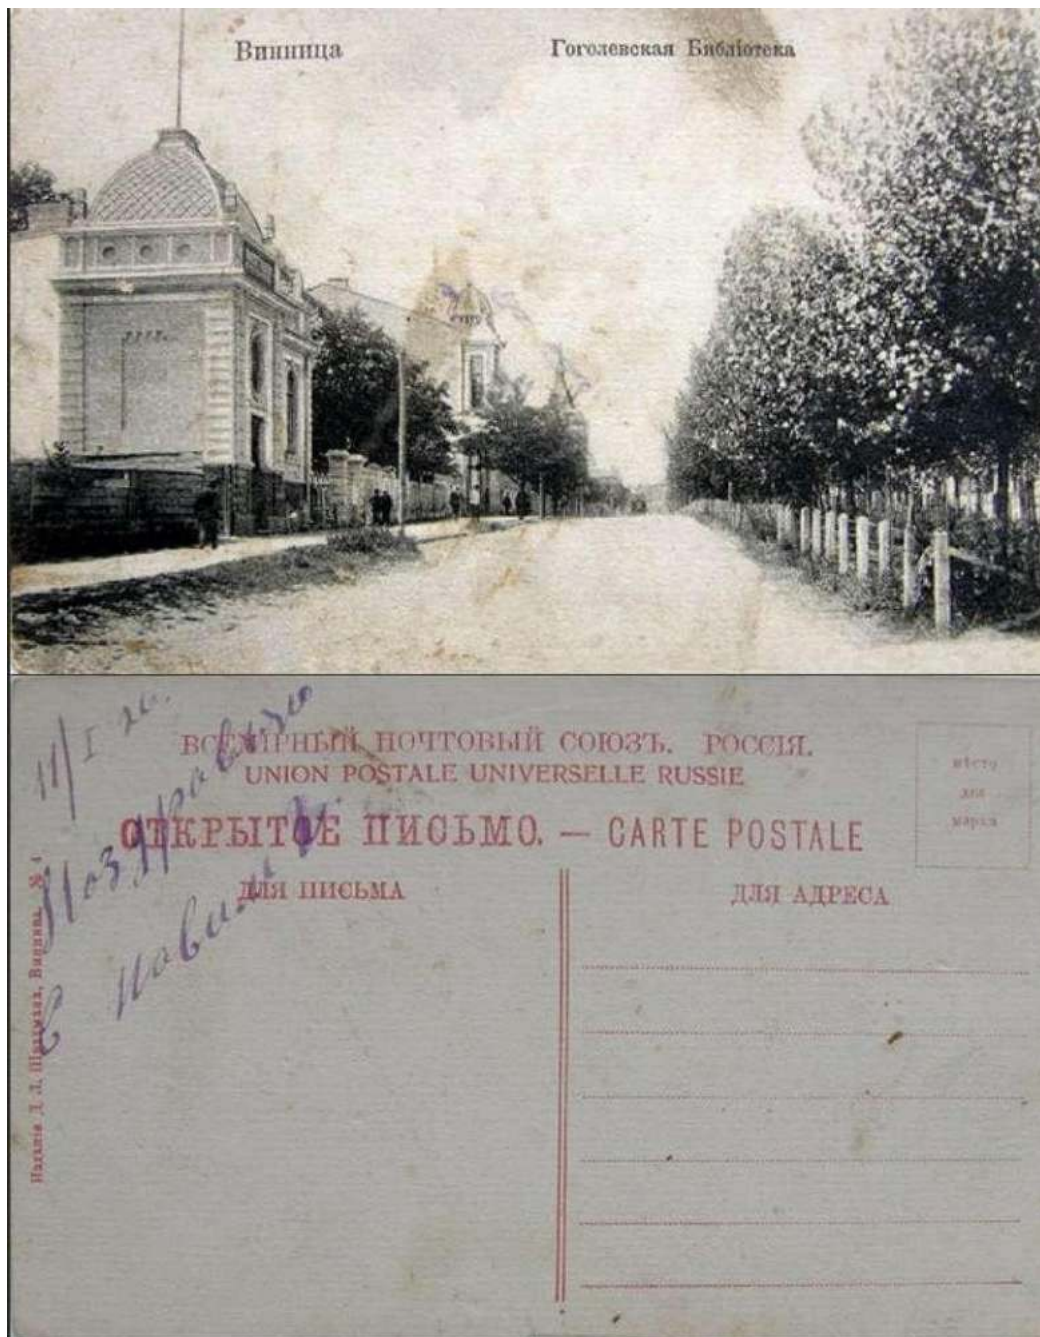 Винница
Гоголевская Библіотека
11/I 20.
Поздравляю
С новим
ВСЕМІРНЫЙ ПОЧТОВЫЙ СОЮЗЪ. РОССІЯ.
UNION POSTALE UNIVERSELLE RUSSIE
ОТКРЫТОЕ ПИСЬМО. — CARTE POSTALE
ДЛЯ ПИСЬМА
ДЛЯ АДРЕСА
мѣсто
для
марки
Изданіе Л. Винница. № 4